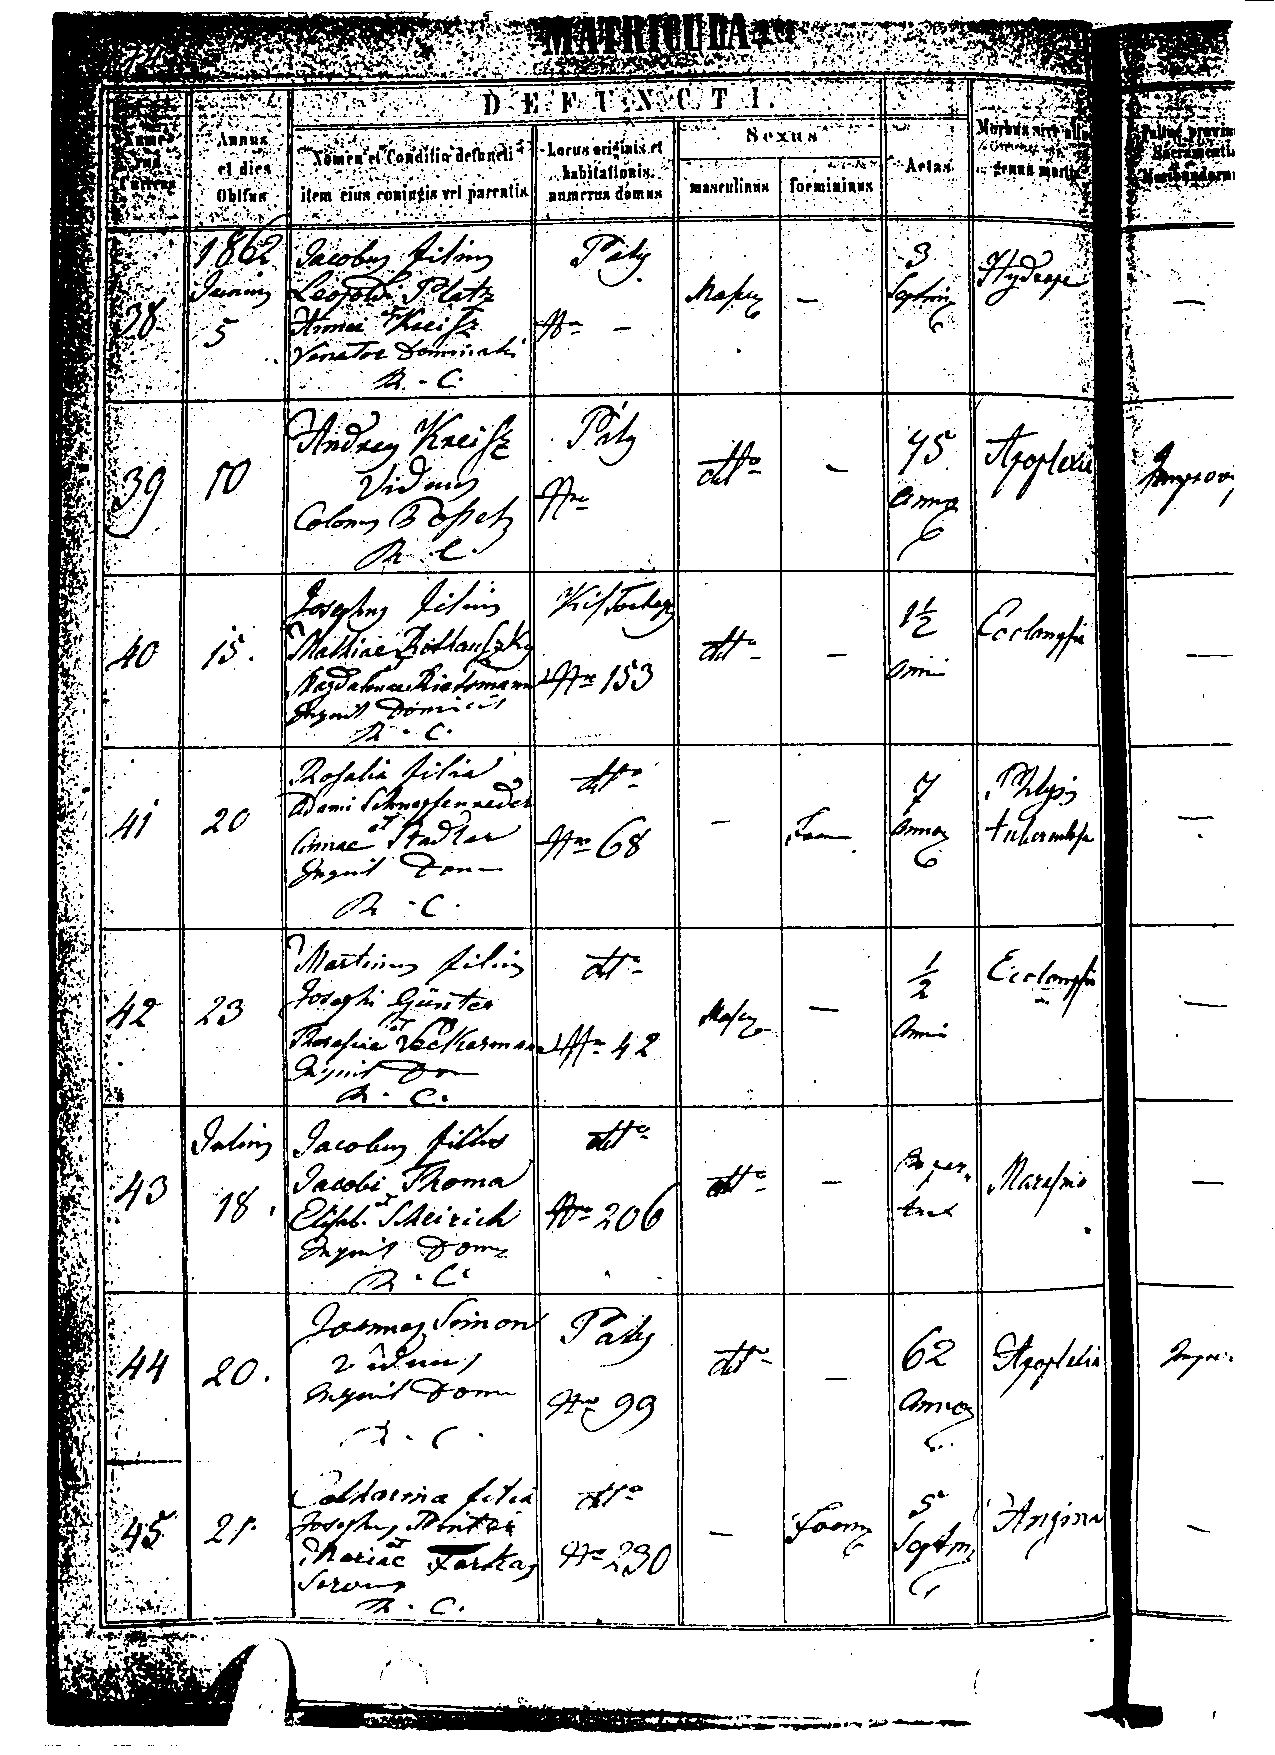 MATRICULA
DEFUNCTI.
Annus
et dies
Obitus
Nomen et Conditio defuncti
item eius coniugis vel parentis
Locus originis et
habitationis,
numerus domus
Sexus
masculinus
foemininus
Aetas
Morbus sive
genus mortis
38
1862
Junius
5
Jacobus filius
Leopoldi Platz
Annae et Kreisz
Venator Dominalis
R. C.
Páty
Nro —
Mascu
—
3
Septim
Hydrops
—
39
10
Andreas Kreisz
Viduus
Colonus
R. C.
Páty
Nro
dtto
—
75
annor
Apoplexia
Improv
40
15.
Josephus filius
Mathiae
Magdalenae
Inquil Domini
R. C.
Nro 153
dtto
—
1½
anni
Ecclampsia
—
41
20
Rosalia filia
Adami Schnapfenneder
Annae et Stadler
Inquil Dom
R. C.
dtto
Nro 68
—
Foem
7
annor
Phtysis
tuberculosa
—
42
23
Martinus filius
Josephi Günter
Theresiae et Veckerman
Inquil Dom
R. C.
dtto
Nro 42
Mascu
—
½
anni
Ecclampsia
—
43
Julius
18.
Jacobus filius
Jacobi Thoma
Elisab. et Scheirich
Inquil Dom
R. C.
dtto
Nro 206
dtto
—
Marasmo
—
44
20.
Joannes Simon
Viduus
Inquil Dom
R. C.
Páty
Nro 99
dtto
—
62
Annor
Apoplexia
Impr
45
21.
Catharina filia
Josephus Pinter
Mariae et Farkas
Servus
R. C.
dtto
Nro 230
—
Foem
5
Septim
Angina
—